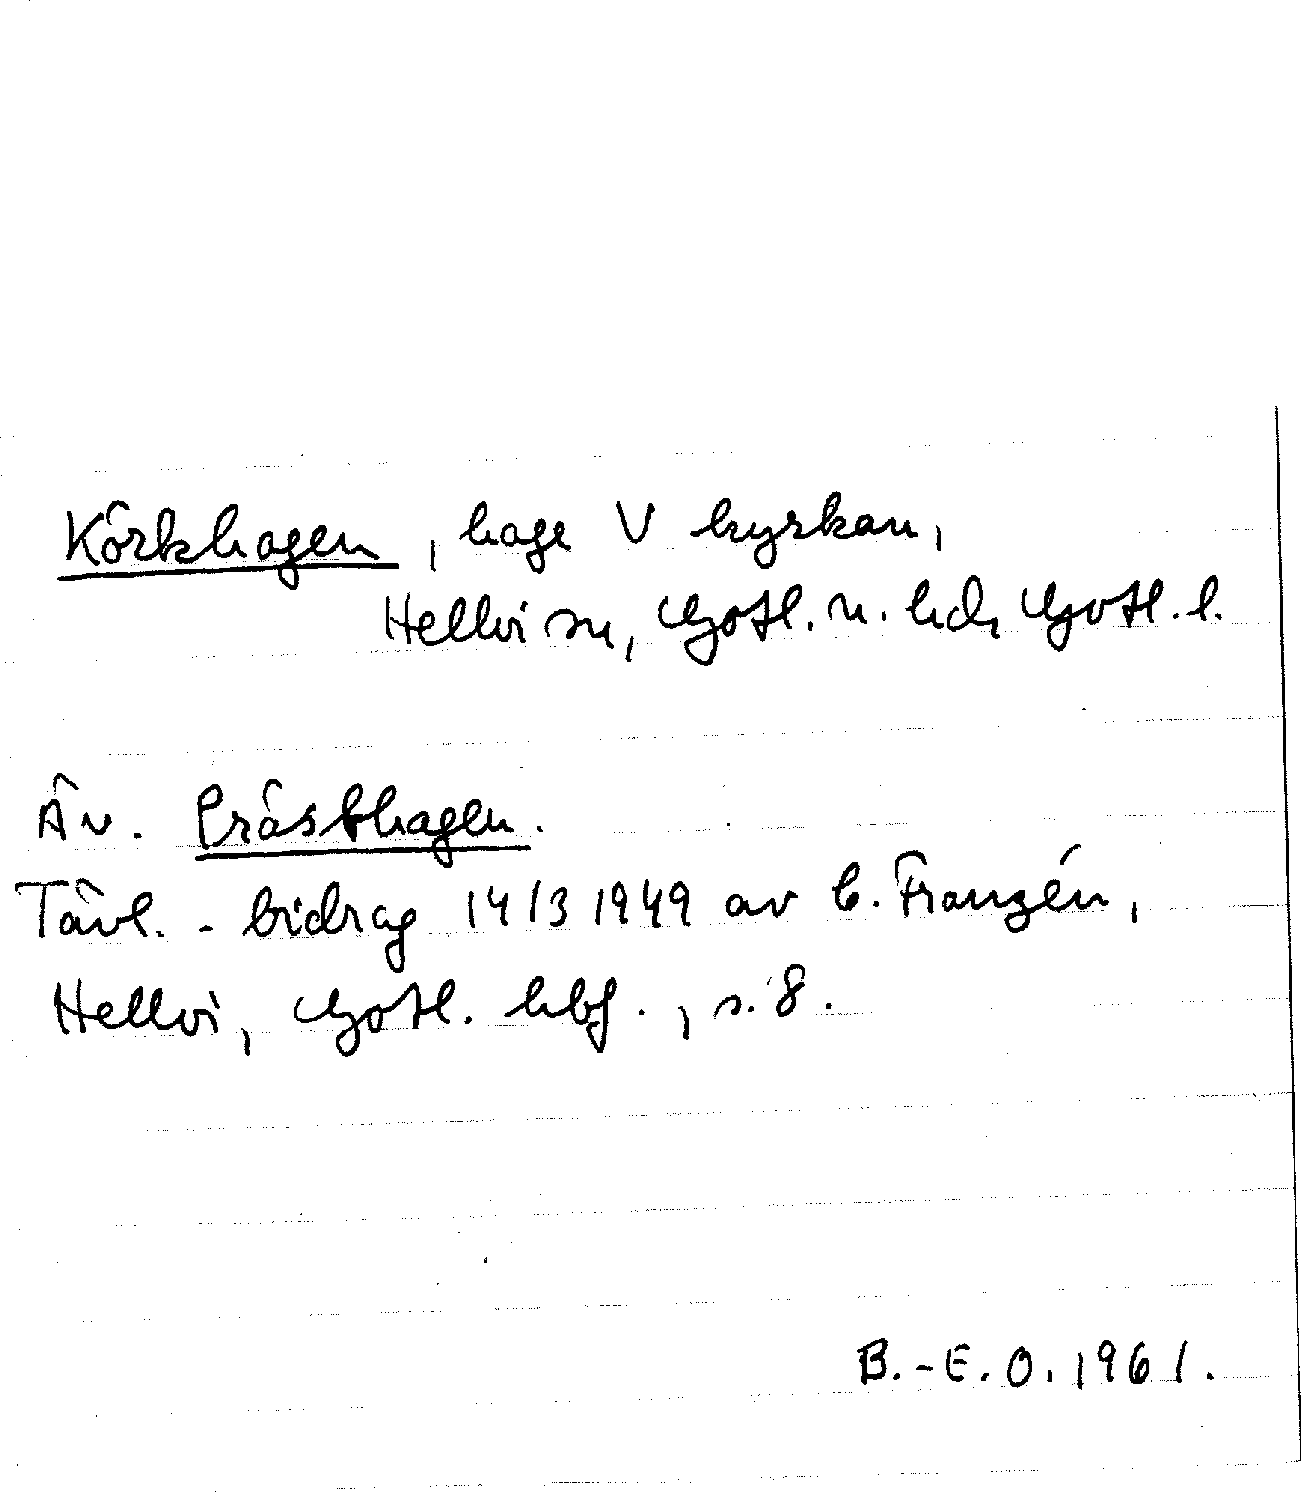 Körkhagen, hage V kyrkan,
Hellvi sn, Gotl. n. hd, Gotl. l.
Äv. Prästhagen.
Tävl.-bidrag 14/3 1949 av C. Franzén,
Hellvi, Gotl. hbf., s. 8.
B.-E. O. 1961.